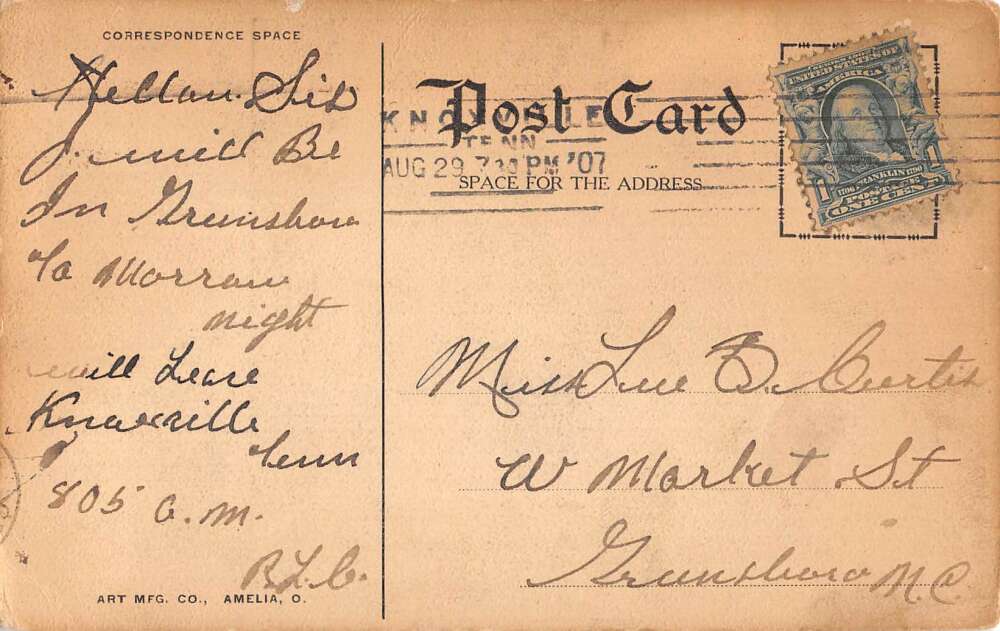 CORRESPONDENCE SPACE
Hellow Sis
I will Be
In Greensboro
To Morrow
night
will Leave
Knoxville
Tenn
805 a.m.
R.L.C.
ART MFG. CO., AMELIA, O.
Post Card
KNOXVILLE
TENN
AUG 29 7 30 PM '07
SPACE FOR THE ADDRESS
SERIES 1902
UNITED STATES OF
AMERICA
1 1706 FRANKLIN 1790 1
POSTAGE
ONE CENT
Miss Lue B. Curtis
W Market St
Greensboro N.C.